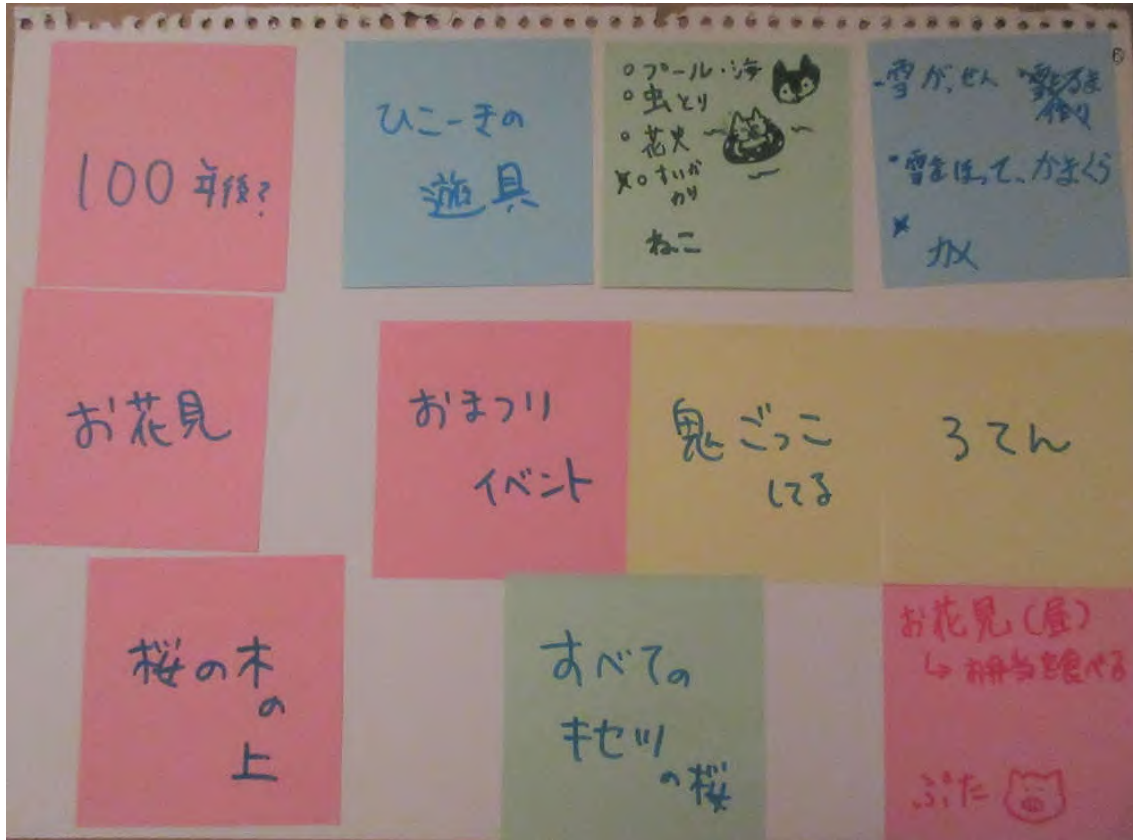 100年後?
ひこーきの
遊具
○プール・海
○虫とり
○花火
×○すいか
わり
ねこ
・雪がっせん
・雪だるま
作り
・雪をほって、かまくら
カメ
お花見
おまつり
イベント
鬼ごっこ
してる
ろてん
桜の木
の
上
すべての
キセツ
の桜
お花見(昼)
↳お弁当を食べる
ぶた